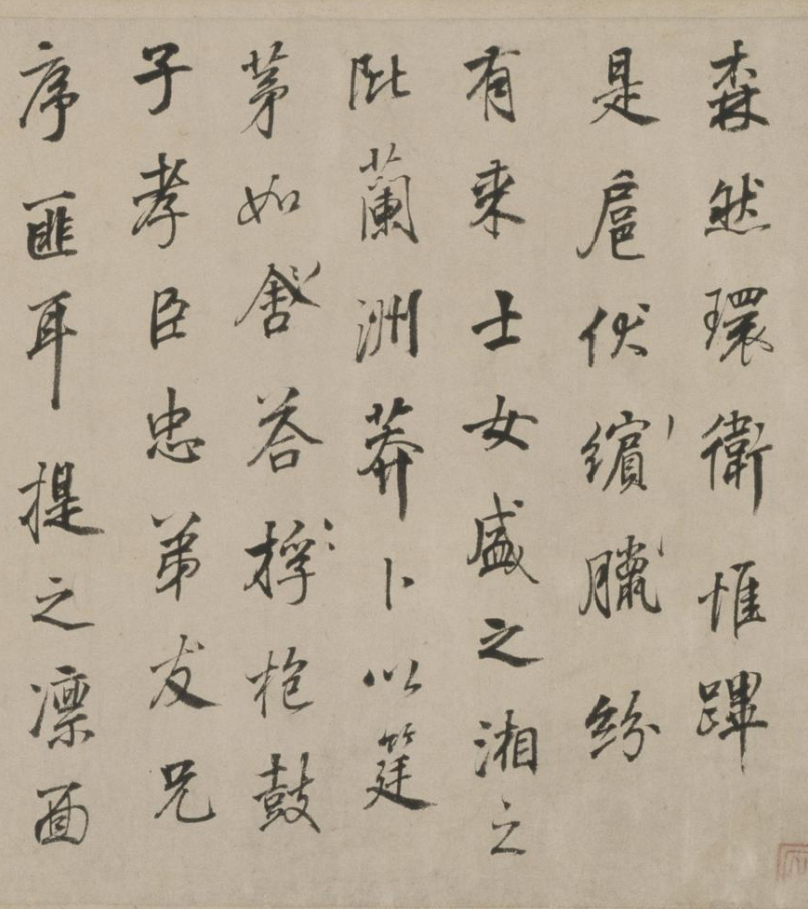 森然環衛惟蹕
是扈伏繽臘紛
有来士女盛之湘之
阰蘭洲莽卜以筳
茅如舍荅桴枹鼓
子孝臣忠弟友兄
序匪耳提之凛面